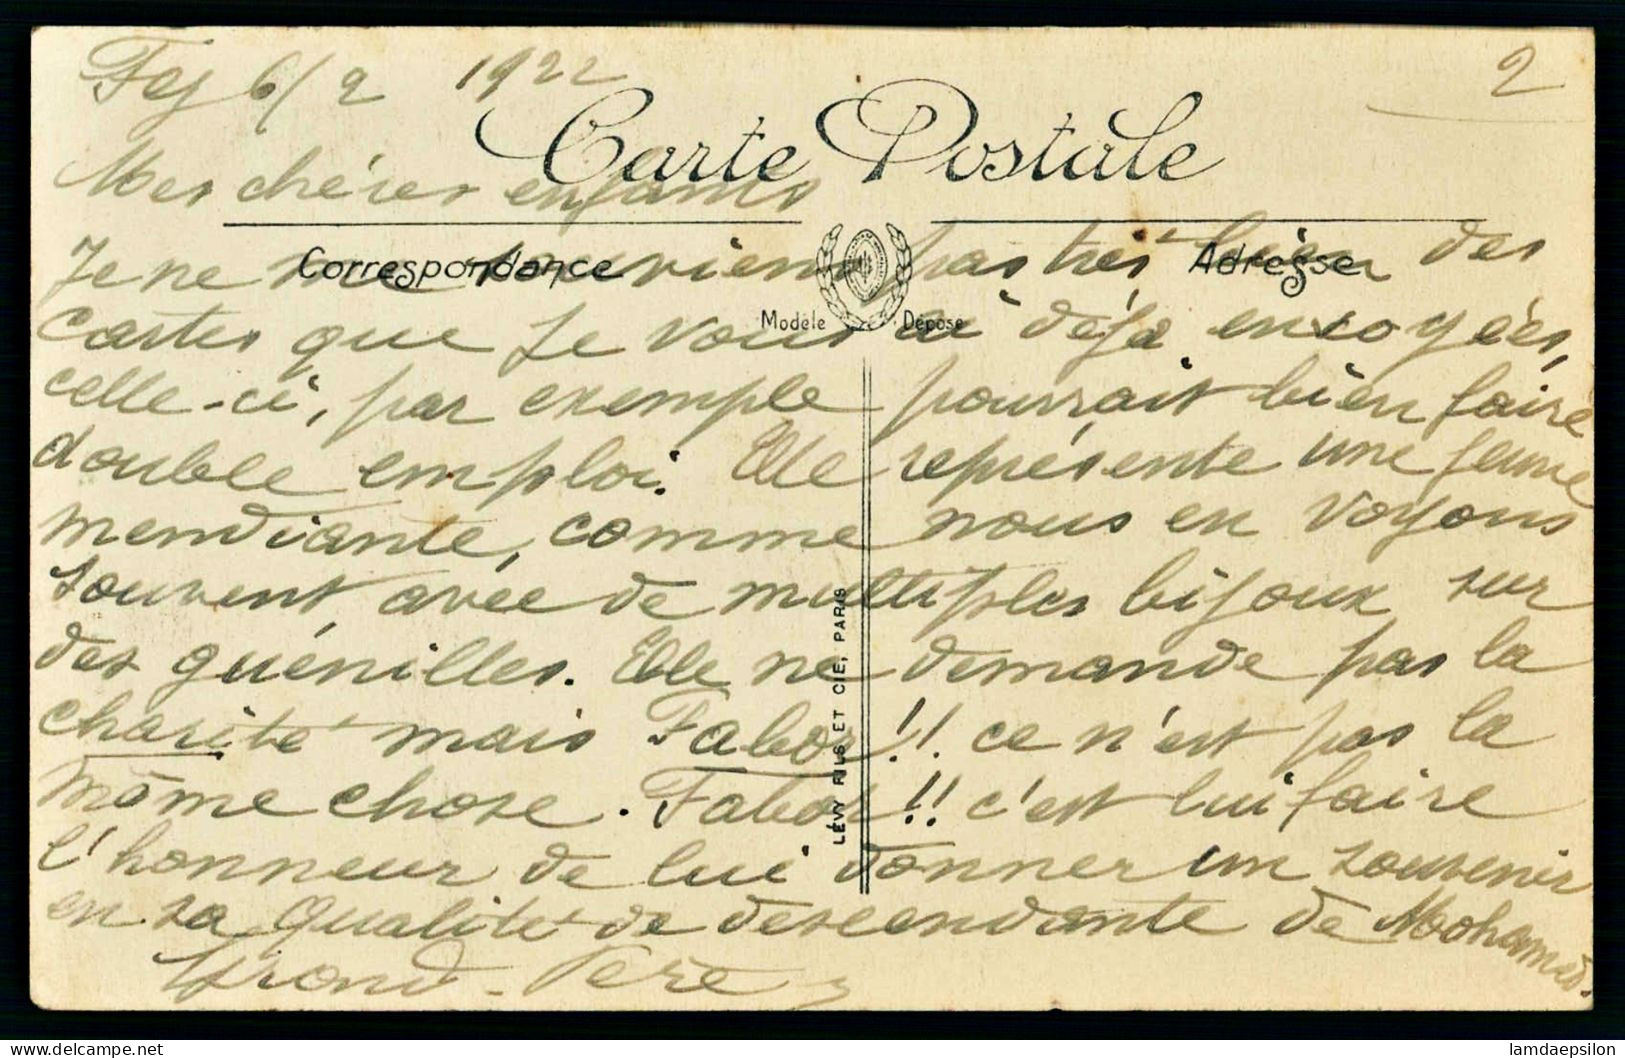 Fez 6/2 1922
2
Carte Postale
Mes chéres enfants
Correspondance
Adresse
Je ne me souviens pas très bien des
Modèle Déposé
cartes que Je vous ai déja envoyées,
celle-ci, par exemple pourrait bien faire
double emploi. Elle représente une femme
mendiante, comme nous en voyons
souvent avec de multiples bijoux sur
des guénilles. Elle ne demande pas la
charité mais Fabor!! ce n'est pas la
même chose. Fabor!! c'est lui faire
l'honneur de lui donner un souvenir
en sa qualité de descendante de Mohammed.
Grand-Père
LÉVY FILS ET CIE, PARIS
delcampe.net
lamdaepsilon